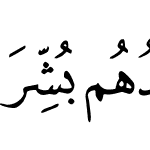 دُهُم بُشِّرَ